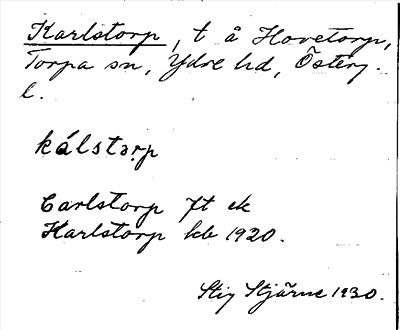 Karlstorp, t å Hovetorp,
Torpa sn, Ydre hd, Österg.
l.
kálstǫrp
Carlstorp Jt ek
Karlstorp kb 1920.
Stig Stjärne 1930.